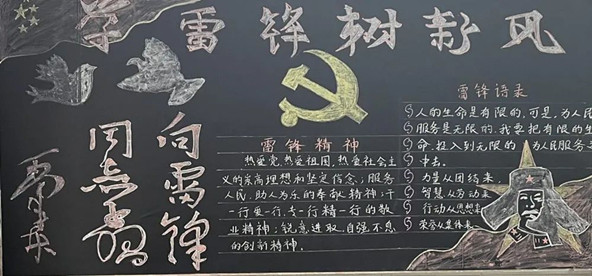 学雷锋树新风
向雷锋
同志学习
毛泽东
雷锋精神
热爱党、热爱祖国、热爱社会主
义的崇高理想和坚定信念；服务
人民、助人为乐的奉献精神；干
一行爱一行、专一行精一行的敬
业精神；锐意进取、自强不息
的创新精神。
雷锋诗录
人的生命是有限的，可是，为人民
服务是无限的，我要把有限的生
命，投入到无限的为人民服务
中去。
力量从团结来，
智慧从劳动来，
行动从思想来，
荣誉从集体来。